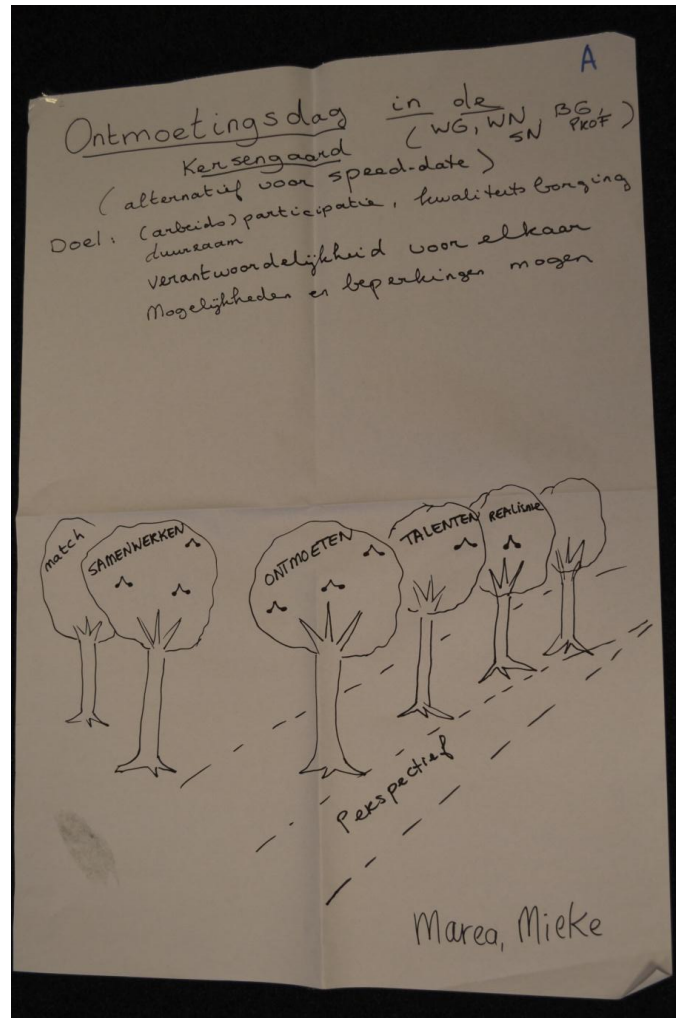 A
Ontmoetingsdag in de
Kersengaard (WG, WN, BG,
SN PROF)
(alternatief voor speed-date)
Doel: (arbeids)participatie, kwaliteitsborging
duurzaam
verantwoordelijkheid voor elkaar
Mogelijkheden en beperkingen mogen
match
SAMENWERKEN
ONTMOETEN
TALENTEN
REALISME
Perspectief
Marea, Mieke